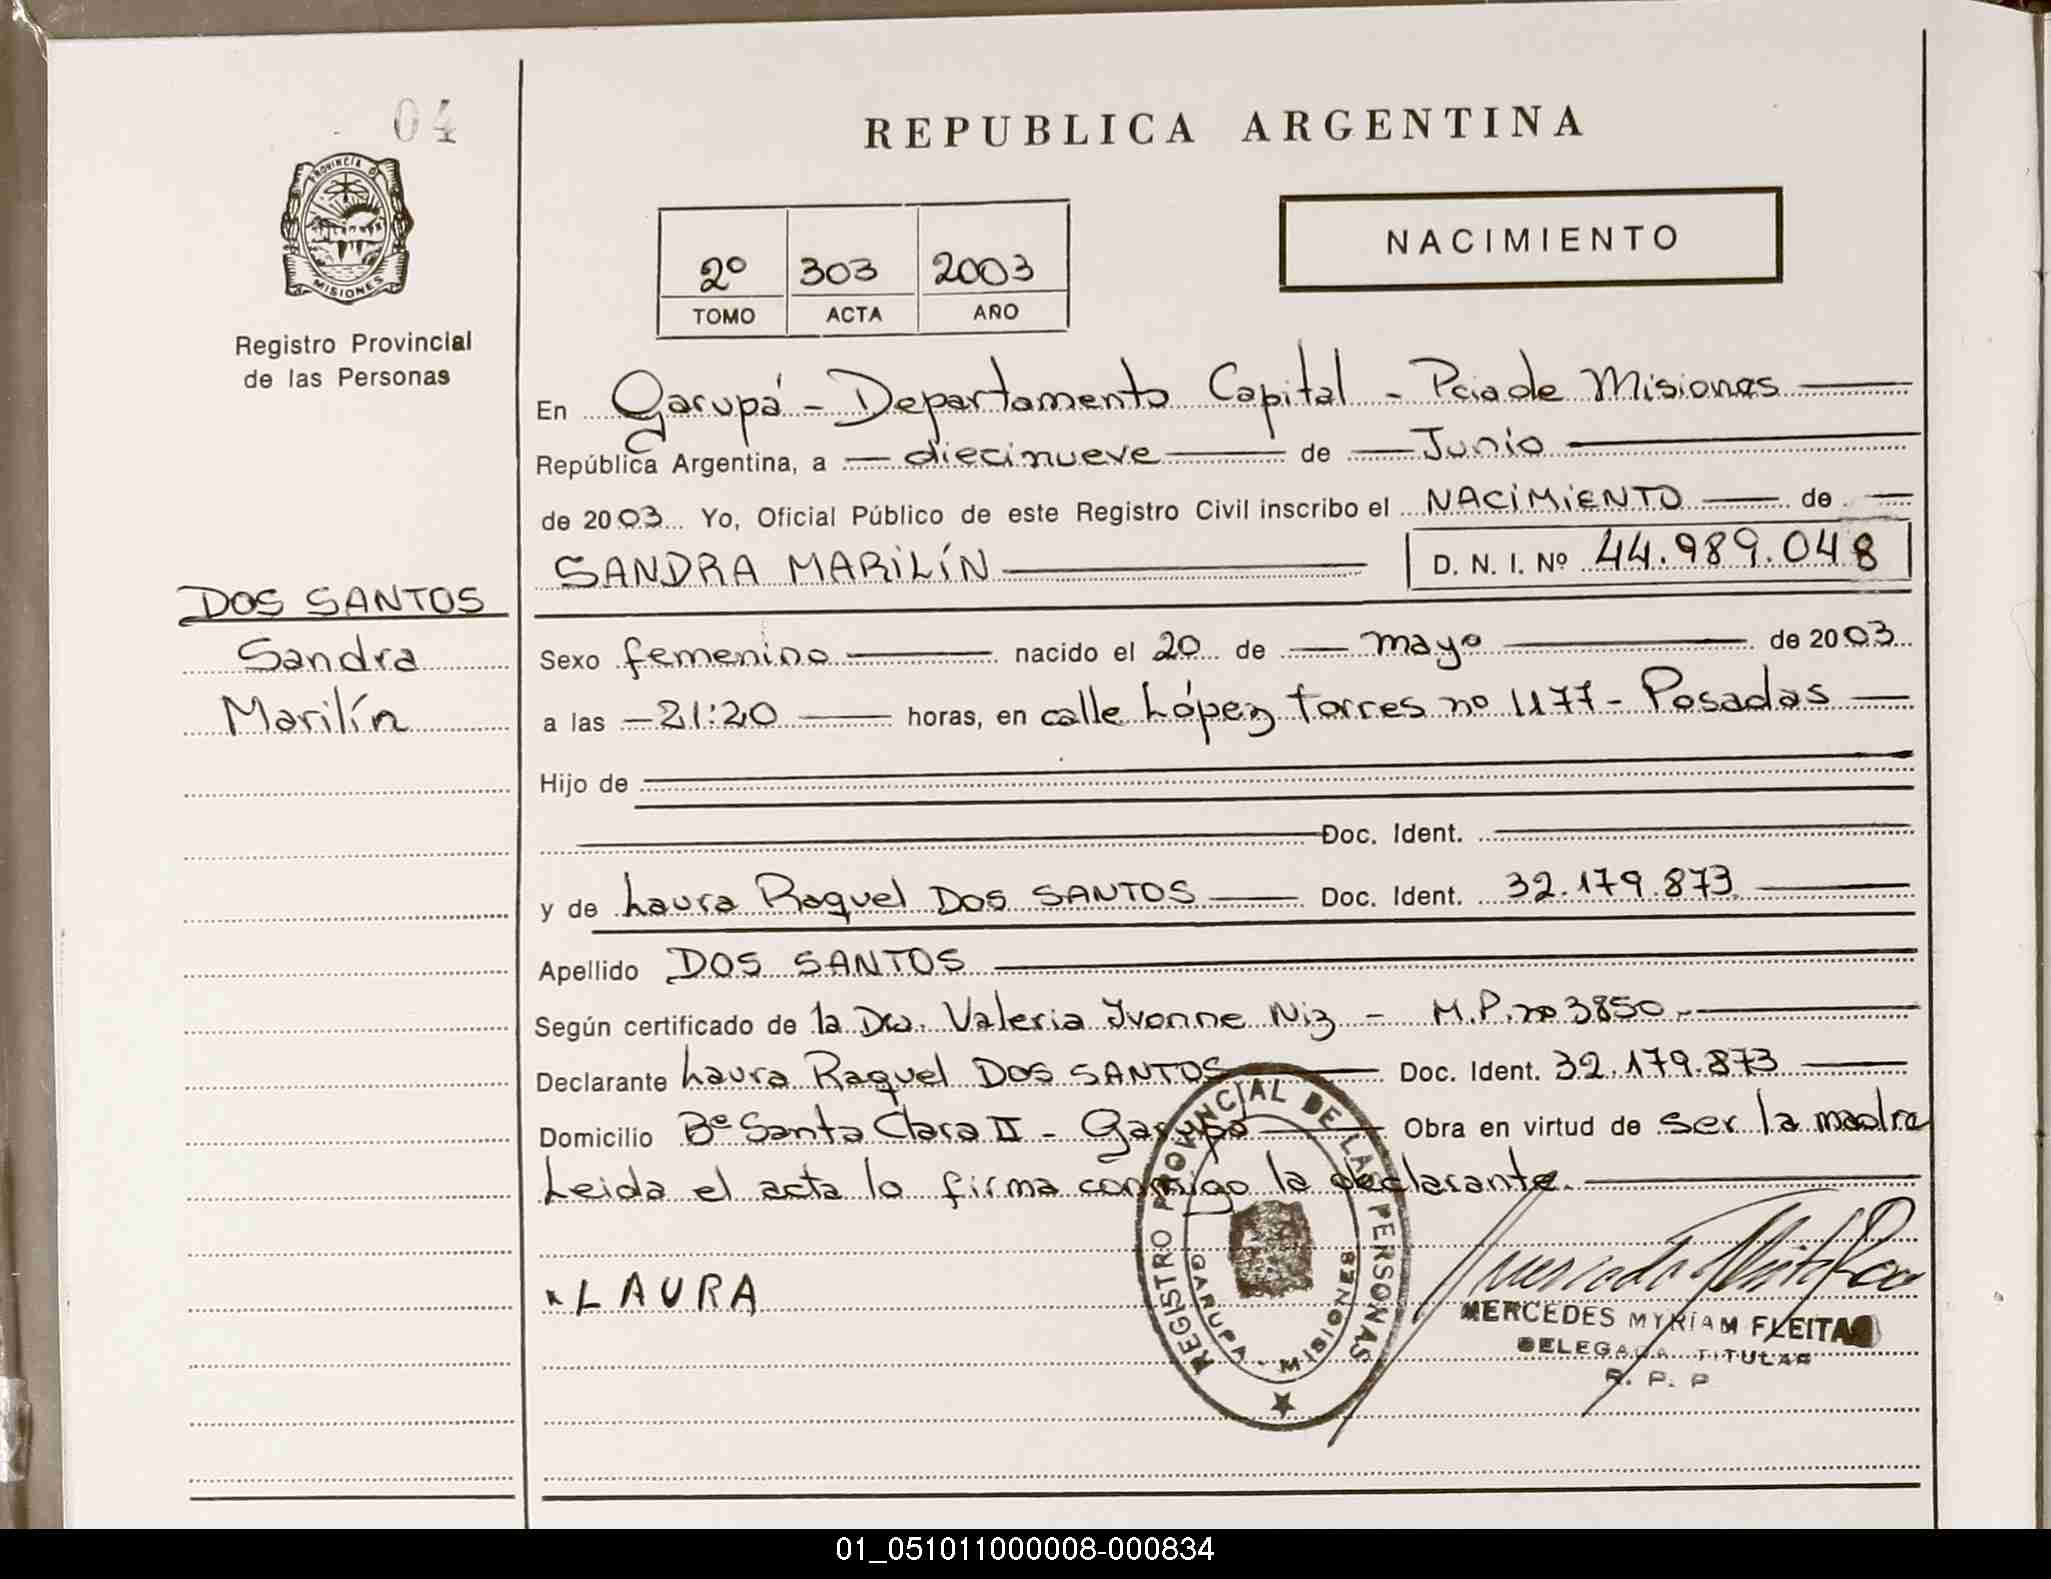 04
REPUBLICA ARGENTINA
PROVINCIA DE
MISIONES
Registro Provincial
de las Personas
2º 303 2003
TOMO ACTA AÑO
NACIMIENTO
En Garupá - Departamento Capital - Pcia de Misiones
República Argentina, a diecinueve de Junio
de 2003 Yo, Oficial Público de este Registro Civil inscribo el NACIMIENTO de
SANDRA MARILÍN D. N. I. Nº 44.989.048
DOS SANTOS
Sandra
Marilín
Sexo femenino nacido el 20 de mayo de 2003
a las 21:20 horas, en calle López torres nº 1177 - Posadas
Hijo de
Doc. Ident.
y de Laura Raquel DOS SANTOS Doc. Ident. 32.179.873
Apellido DOS SANTOS
Según certificado de la Dra. Valeria Ivonne Niz - M.P. nº 3850.-
Declarante Laura Raquel DOS SANTOS Doc. Ident. 32.179.873
Domicilio Bº Santa Clara II - Garupá Obra en virtud de ser la madre
Leida el acta la firma conmigo la declarante.
x LAURA
REGISTRO PROVINCIAL DE LAS PERSONAS
GARUPA - MISIONES
MERCEDES MYRIAM FLEITAS
DELEGADA TITULAR
R. P. P
01_051011000008-000834